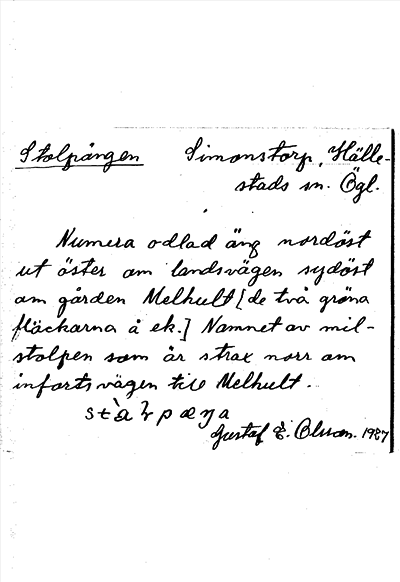 Stolpängen Simonstorp, Hälle-
stads sn. Ögl.
Numera odlad äng nordöst
ut öster om landsvägen sydöst
om gården Melhult [de två gröna
fläckarna å ek.] Namnet av mil-
stolpen som är strax norr om
infartsvägen till Melhult.
Gustaf E. Olsson. 1927